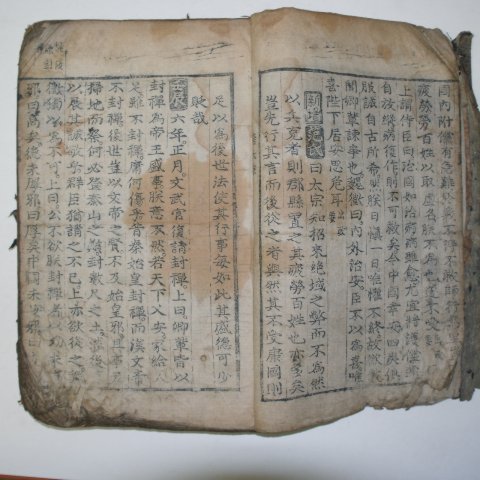 國內附儻有急難於義不得不救師行萬里豈不
疲勞勞百姓以取虛名朕不為也遂不受
上謂侍臣曰治國如治病病雖愈尤宜將護儻遽
自放縱病復作則不可救矣今中國幸安四夷俱
服誠自古所希然朕日愼一日唯懼不終故欲數
聞卿輩諫爭也魏徵曰內外治安臣不以為喜唯
喜陛下居安思危耳
新增范氏曰太宗知招來絶域之弊而不為然
以兵克者則郡縣置之其疲勞百姓也亦多矣
豈先行其言而後從之者與然其不受康國則
足以為後世法使其行事每如此其盛德可少
貶哉
壬辰六年正月文武官復請封禪上曰卿輩皆以
封禪為帝王盛事朕意不然若天下乂安家給人
足雖不封禪庸何傷乎昔秦始皇封禪而漢文帝
不封禪後世豈以文帝之賢不及始皇邪且事天
掃地而祭何必登泰山之巓封數尺之土然後可
以展其誠敬乎群臣猶請之不已上亦欲從之魏
徵獨以為不可上曰公不欲朕封禪者以功未高
邪曰高矣德未厚邪曰厚矣中國未安邪曰